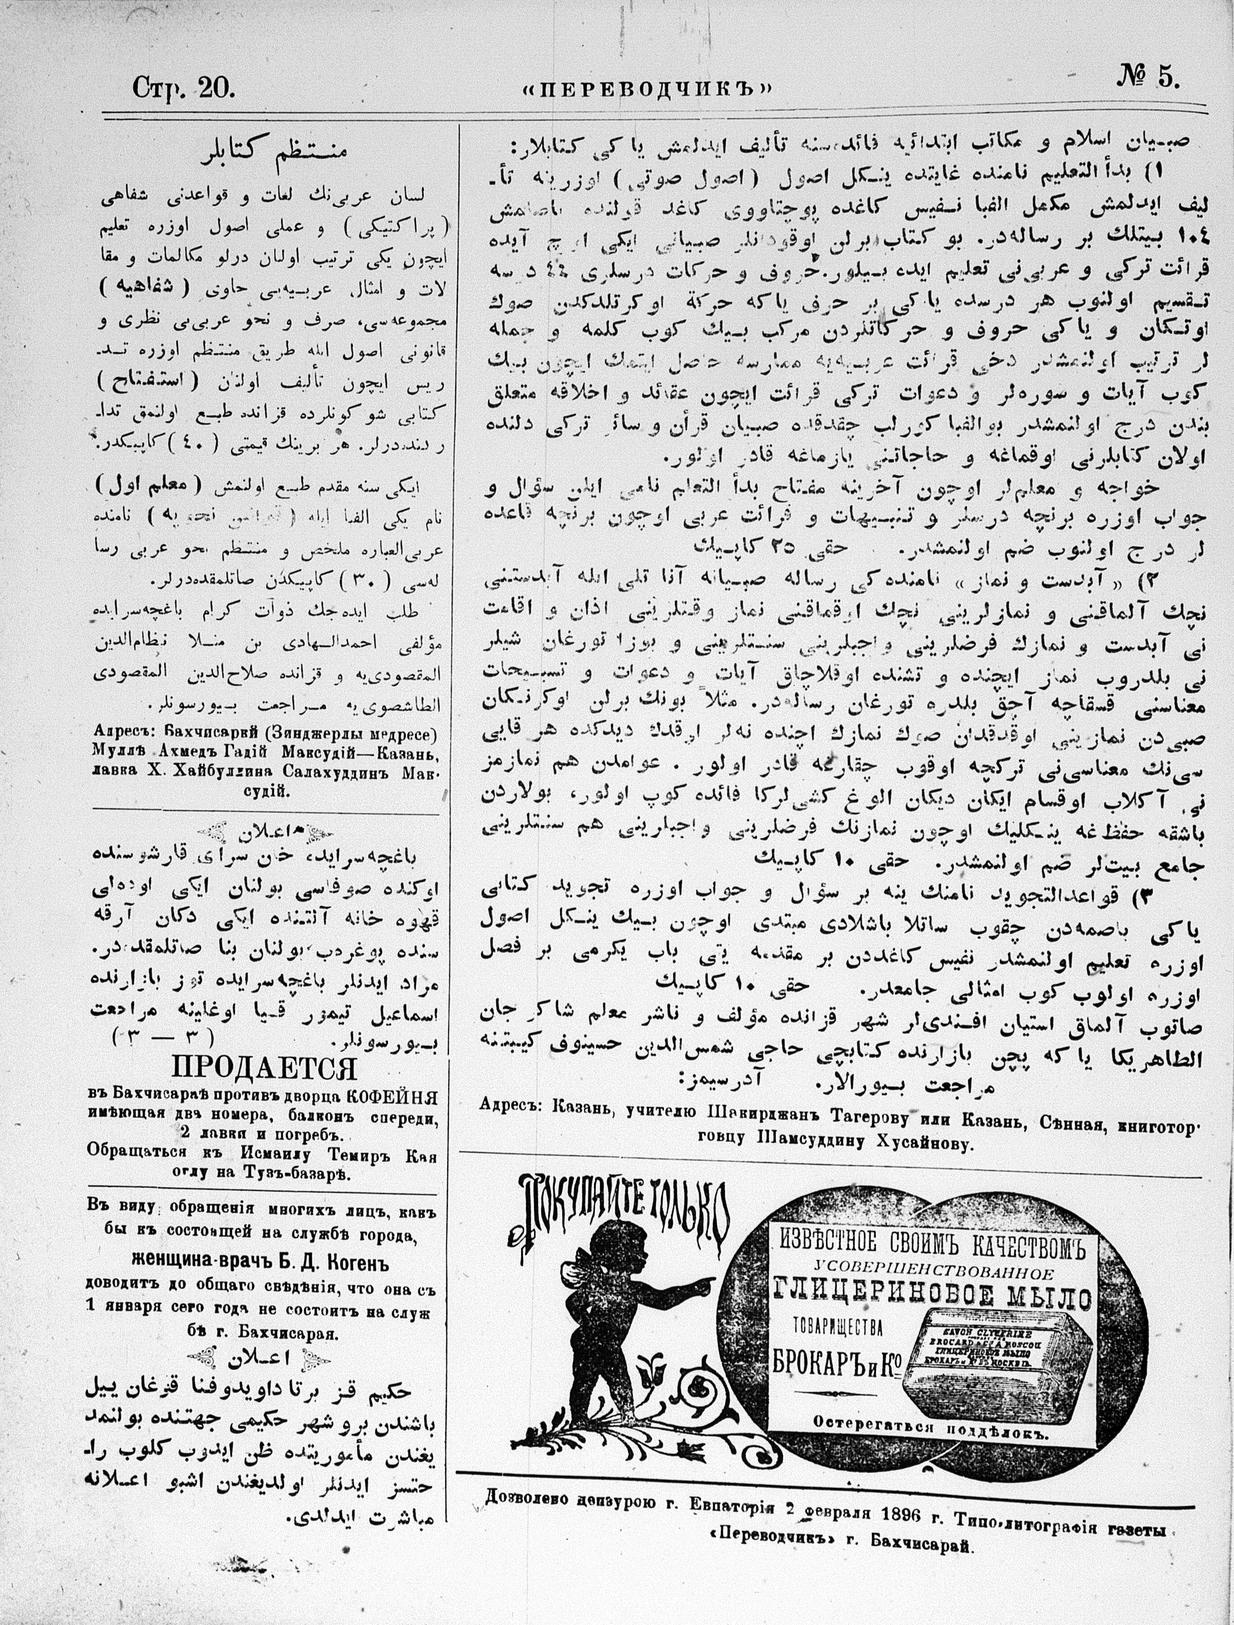 Стр. 20.
«ПЕРЕВОДЧИКЪ»
№ 5.
منتظم كتابلر
لسان عربی‌نك لغات و قواعدنی شفاهی
(پراكتیكی) و عملی اصول اوزره تعلیم
ایچون یكی ترتیب اولنان درلو مكالمات و مقا
لات و امثال عربیه‌یی حاوی (شفاهیه)
مجموعه‌سی، صرف و نحو عربی‌یی نظری و
قانونی اصول ایله طریق منتظم اوزره تد‍ـ
ریس ایچون تألیف اولنان (استفتاح)
كتابی شو كونلرده قزانده طبع اولنمق تدا‍ـ
ركنده‌درلر. هر برینك قیمتی (٤٠) كاپیكدر.
ایكی سنه مقدم طبع اولنمش (معلم اول)
نام یكی الفبا ایله (قوانین نحویه) نامنده
عربی‌العباره ملخص و منتظم نحو عربی رسا
له‌سی (٣٠) كاپیكدن صاتلمقده‌درلر.
طلب ایده‌جك ذوات كرام باغچه‌سرایده
مؤلفی احمدالهادی بن منلا نظام‌الدین
المقصودی‌یه و قزانده صلاح‌الدین المقصودی
الطاشصوی‌یه مراجعت بیورسونلر.
Адресъ: Бахчисарай (Зинджерлы медресе)
Муллѣ Ахмедъ Гадій Максудій—Казань,
лавка Х. Хайбуллина Салахуддинъ Мак-
судій.
اعلان
باغچه‌سرایده خان سرای قارشوسنده
اوكنده صوفاسی بولنان ایكی اوده‌لی
قهوه خانه آلتنده ایكی دكان آرقه
سنده پوغرب بولنان بنا صاتلمقده‌در.
مراد ایدنلر باغچه‌سرایده توز بازارنده
اسماعیل تیمور قیا اوغلینه مراجعت
بیورسونلر. (٣ — ٣)
ПРОДАЕТСЯ
въ Бахчисараѣ противъ дворца КОФЕЙНЯ
имѣющая два номера, балконъ спереди,
2 лавки и погребъ.
Обращаться къ Исмаилу Темиръ Кая
оглу на Тузъ-базарѣ.
Въ виду обращенія многихъ лицъ, какъ
бы къ состоящей на службѣ города,
женщина-врачъ Б. Д. Когенъ
доводитъ до общаго свѣдѣнія, что она съ
1 января сего года не состоитъ на служ
бѣ г. Бахчисарая.
اعلان
حكیم قز برتا داویدوفنا قزغان ییل
باشندن برو شهر حكیمی جهتنده بولنمد
یغندن مأموریتده ظن ایدوب كلوب را‍ـ
حتسز ایدنلر اولدیغندن اشبو اعلانه
مباشرت ایدلدی.
صبیان اسلام و مكاتب ابتدائیه فائده‌سنه تألیف ایدلمش یاكی كتابلار:
١) بدأ التعلیم نامنده غایتده ینكل اصول (اصول صوتی) اوزرینه تأ‍ـ
لیف ایدلمش مكمل الفبا نفیس كاغده پوچتاووی كاغد قولنده باصلمش
١٠٤ بیتلك بر رساله‌در. بو كتاب برلن اوقودانلر صبیانی ایكی اوچ آیده
قرائت تركی و عربی‌نی تعلیم ایده بیلور. حروف و حركات درسلری ٤٤ درسه
تقسیم اولنوب هر درسده یاكی بر حرف یاكه حركة اوكرتلدكدن صوك
اوتكان و یاكی حروف و حركاتلردن مركب بیك كوب كلمه و جمله
لر ترتیب اولنمشدر دخی قرائت عربیه‌یه ممارسه حاصل ایتمك ایچون بیك
كوب آیات و سوره‌لر و دعوات تركی قرائت ایچون عقائد و اخلاقه متعلق
بندن درج اولنمشدر بوالفبا كورلب چقدقده صبیان قرأن و سائر تركی دلنده
اولان كتابلرنی اوقماغه و حاجاتنی یازماغه قادر اولور.
خواجه و معلم‌لر اوچون آخرینه مفتاح بدأ التعلم نامی ایلن سؤال و
جواب اوزره برنچه درسلر و تنبیهات و قرائت عربی اوچون برنچه قاعده
لر درج اولنوب ضم اولنمشدر. حقی ٢٥ كاپیك
٢) «آبدست و نماز» نامنده‌كی رساله صبیانه آنا تلی ایله آبدستنی
نچك آلماقنی و نمازلرینی نچك اوقماقنی نماز وقتلرینی اذان و اقامت
نی آبدست و نمازك فرضلرینی واجبلرینی سنتلرینی و بوزا تورغان شیلر
نی بلدروب نماز ایچنده و تشنده اوقلاچاق آیات و دعوات و تسبیحات
معناسنی قسقاچه آچق بلدره تورغان رساله‌در. مثلاً بونك برلن اوكرنكان
صبی‌دن نمازینی اوقدقدان صوك نمازك اچنده نه‌لر اوقدك دیدكده هر قایی
سی‌نك معناسی‌نی تركچه اوقوب چقارغه قادر اولور. عوامدن هم نمازمز
نی آكلاب اوقسام ایكان دیكان الوغ كشی‌لركا فائده كوب اولور، بولاردن
باشقه حفظ‌غه ینكلیك اوچون نمازنك فرضلرینی واجبلرینی هم سنتلرینی
جامع بیت‌لر ضم اولنمشدر. حقی ١٠ كاپیك
٣) قواعدالتجوید نامنك ینه بر سؤال و جواب اوزره تجوید كتابی
یاكی باصمه‌دن چقوب ساتلا باشلادی مبتدی اوچون بیك ینكل اصول
اوزره تعلیم اولنمشدر نفیس كاغددن بر مقدمه یتی باب یكرمی بر فصل
اوزره اولوب كوب امثالی جامعدر. حقی ١٠ كاپیك
صاتوب آلماق استیان افندی‌لر شهر قزانده مؤلف و ناشر معلم شاكر جان
الطاهریكا یا كه پچن بازارنده كتابچی حاجی شمس‌الدین حسینوف كیبتنه
مراجعت بیورالار. آدرسیمز:
Адресъ: Казань, учителю Шакирджанъ Тагерову или Казань, Сѣнная, книготор-
говцу Шамсуддину Хусайнову.
ПОКУПАЙТЕ ТОЛЬКО
ИЗВѢСТНОЕ СВОИМЪ КАЧЕСТВОМЪ
УСОВЕРШЕНСТВОВАННОЕ
ГЛИЦЕРИНОВОЕ МЫЛО
ТОВАРИЩЕСТВА
БРОКАРЪ и Кº
SAVON GLYCERINE
BROCARD & Cº A MOSCOU
ГЛИЦЕРИНОВОЕ МЫЛО
БРОКАРЪ и Кº ВЪ МОСКВѢ.
Остерегаться поддѣлокъ.
Дозволено цензурою г. Евпаторія 2 февраля 1896 г. Типо-литографія газеты
«Переводчикъ» г. Бахчисарай.